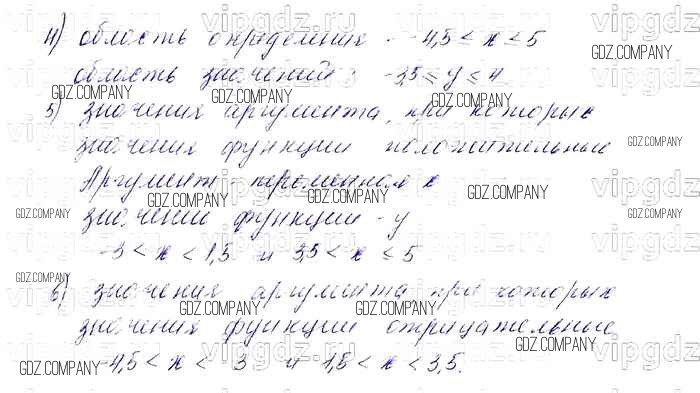 4) область определения - -4,5 ≤ x ≤ 5
область значений: -3,5 ≤ y ≤ 4
5) значения аргумента, при которых
значения функции положительные
Аргумент - переменная x
значений функции - y
-3 < x < 1,5 и 3,5 < x ≤ 5
6) значения аргумента при которых
значения функции отрицательные
-4,5 < x < 3 и 1,5 < x < 3,5.
vipgdz.ru
GDZ.COMPANY